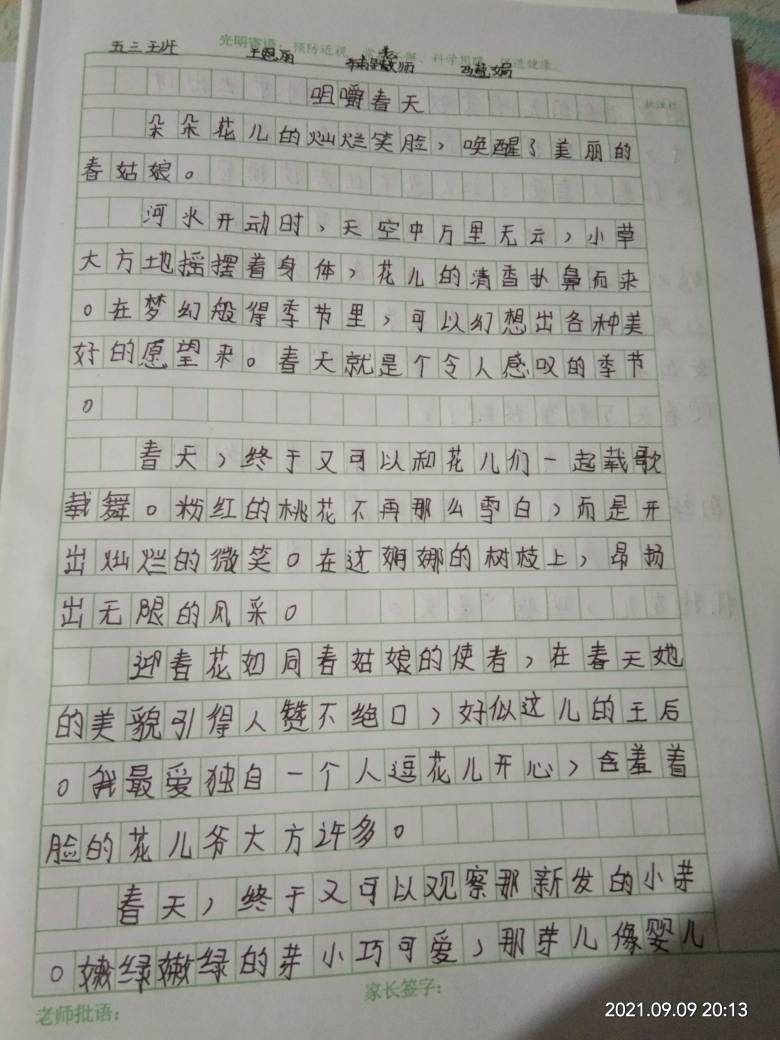 光明寄语：预防近视
五三班
辅导教师
咀嚼春天
朵朵花儿的灿烂笑脸，唤醒了美丽的
春姑娘。
河水开动时，天空中万里无云，小草
大方地摇摆着身体，花儿的清香扑鼻而来
。在梦幻般得季节里，可以幻想出各种美
好的愿望来。春天就是个令人感叹的季节
。
春天，终于又可以和花儿们一起载歌
载舞。粉红的桃花不再那么雪白，而是开
出灿烂的微笑。在这婀娜的树枝上，昂扬
出无限的风采。
迎春花如同春姑娘的使者，在春天她
的美貌引得人赞不绝口，好似这儿的王后
。我最爱独自一个人逗花儿开心，含羞着
脸的花儿爷大方许多。
春天，终于又可以观察那新发的小芽
。嫩绿嫩绿的芽小巧可爱，那芽儿像婴儿
家长签字：
老师批语：
2021.09.09 20:13